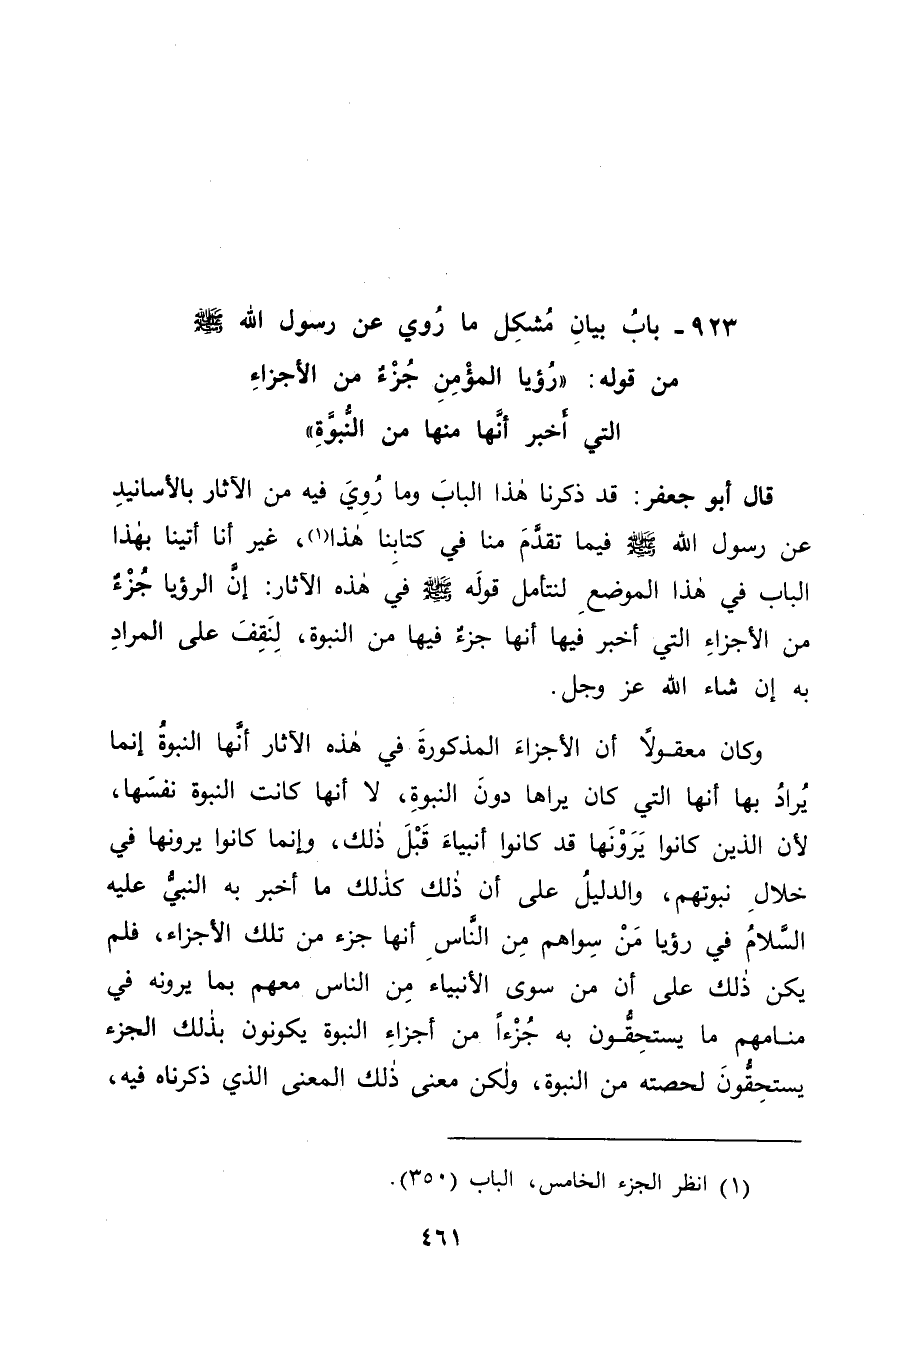 ٩٢٣ ـ بابُ بيانِ مُشكِل ما رُوي عن رسول الله ﷺ
من قوله: «رُؤيا المؤْمِنِ جُزْءٌ من الأجزاءِ
التي أَخبر أنَّها منها من النُّبوَّةِ»
قال أبو جعفر: قد ذكرنا هٰذا البابَ وما رُوِيَ فيه من الآثار بالأسانيدِ
عن رسول الله ﷺ فيما تقدَّمَ منا في كتابِنا هٰذا(١)، غير أنا أتينا بهٰذا
الباب في هٰذا الموضعِ لنتأمل قولَه ﷺ في هٰذه الآثار: إنَّ الرؤيا جُزْءٌ
من الأجزاءِ التي أخبر فيها أنها جزءٌ فيها من النبوة، لِنَقِفَ على المرادِ
به إن شاء الله عز وجل.
وكان معقـولاً أن الأجزاءَ المذكورةَ في هٰذه الآثار أنَّها النبوةُ إنما
يُرادُ بها أنها التي كان يراها دونَ النبوةِ، لا أنها كانت النبوة نفسَها،
لأن الذين كانوا يَرَوْنَها قد كانوا أنبياءَ قَبْلَ ذٰلك، وإنما كانوا يرونها في
خلالِ نبوتهم، والدليلُ على أن ذٰلك كذٰلك ما أخبر به النبيُّ عليه
السَّلامُ في رؤيا مَنْ سِواهم مِن النَّاسِ أنها جزء من تلك الأجزاء، فلم
يكن ذٰلك على أن من سوى الأنبياء مِن الناس معهم بما يرونه في
منـامهم ما يستحِقُّـون به جُزْءاً من أجزاءِ النبوة يكونون بذٰلك الجزء
يستحِقُّونَ لحصته من النبوة، ولٰكن معنى ذٰلك المعنى الذي ذكرناه فيه،
(١) انظر الجزء الخامس، الباب (٣٥٠).
٤٦١